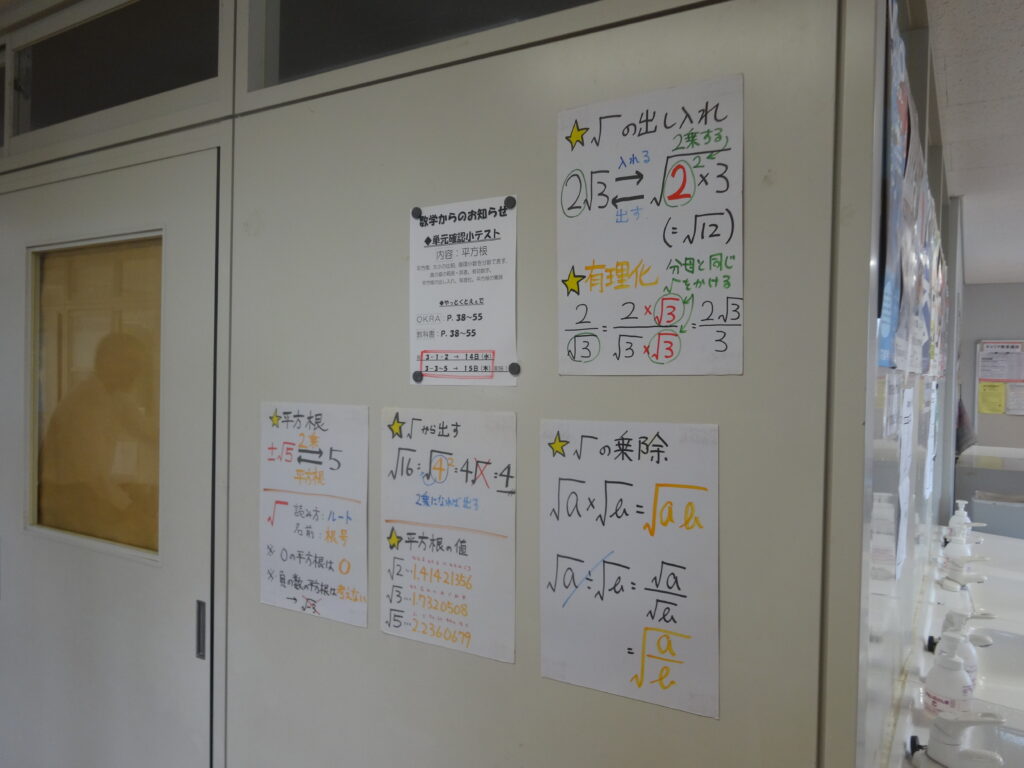 ★√の出し入れ
2乗する
2√3 入れる ⇄ 出す √2²×3
(=√12)
★有理化 分母と同じ√をかける
2/√3 = 2×√3/√3×√3 = 2√3/3
数学からのお知らせ
◆単元確認小テスト
内容：平方根
◆やっとくとええで
OKRA：P．38～55
教科書：P．38～55
3－1・2 → 14日(水)
3－3～5 → 15日(木)
★平方根
±√5 2乗 ⇄ 平方根 5
√ 読み方：ルート
名前：根号
※ 0の平方根は 0
※ 負の数の平方根は考えない
→ √-3
★√から出す
√16=√4²=4√=4
2乗になれば出る
★平方根の値
√2…1.41421356
√3…1.7320508
√5…2.2360679
★√の乗除
√a×√b=√ab
√a÷√b=√a/√b
=√a/b